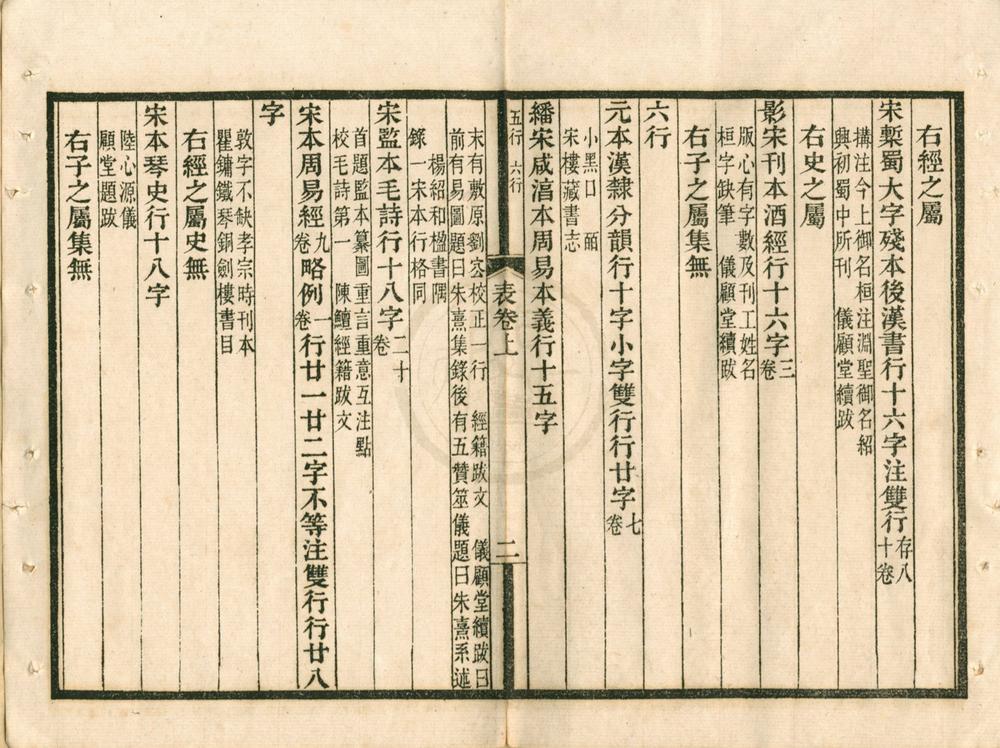 右經之屬
宋槧蜀大字殘本後漢書行十六字注雙行存八十卷
搆注今上御名桓注淵聖御名紹
興初蜀中所刊　儀顧堂續跋
右史之屬
影宋刊本酒經行十六字三卷
版心有字數及刊工姓名
桓字缺筆　儀顧堂續跋
右子之屬集無
六行
元本漢隸分韻行十字小字雙行行廿字七卷
小黑口　皕
宋樓藏書志
繙宋咸淳本周易本義行十五字
五行　六行
表卷上
二
末有敷原劉宏校正一行　經籍跋文　儀顧堂續跋曰
前有易圖題曰朱熹集錄後有五贊筮儀題曰朱熹系述
楊紹和楹書隅
錄一宋本行格同
宋監本毛詩行十八字二十卷
首題監本纂圖重言重意互注點
校毛詩第一　陳鱣經籍跋文
宋本周易經九卷略例一卷行廿一廿二字不等注雙行行廿八
字
敦字不缺孝宗時刊本
瞿鏞鐵琴銅劍樓書目
右經之屬史無
宋本琴史行十八字
陸心源儀
顧堂題跋
右子之屬集無